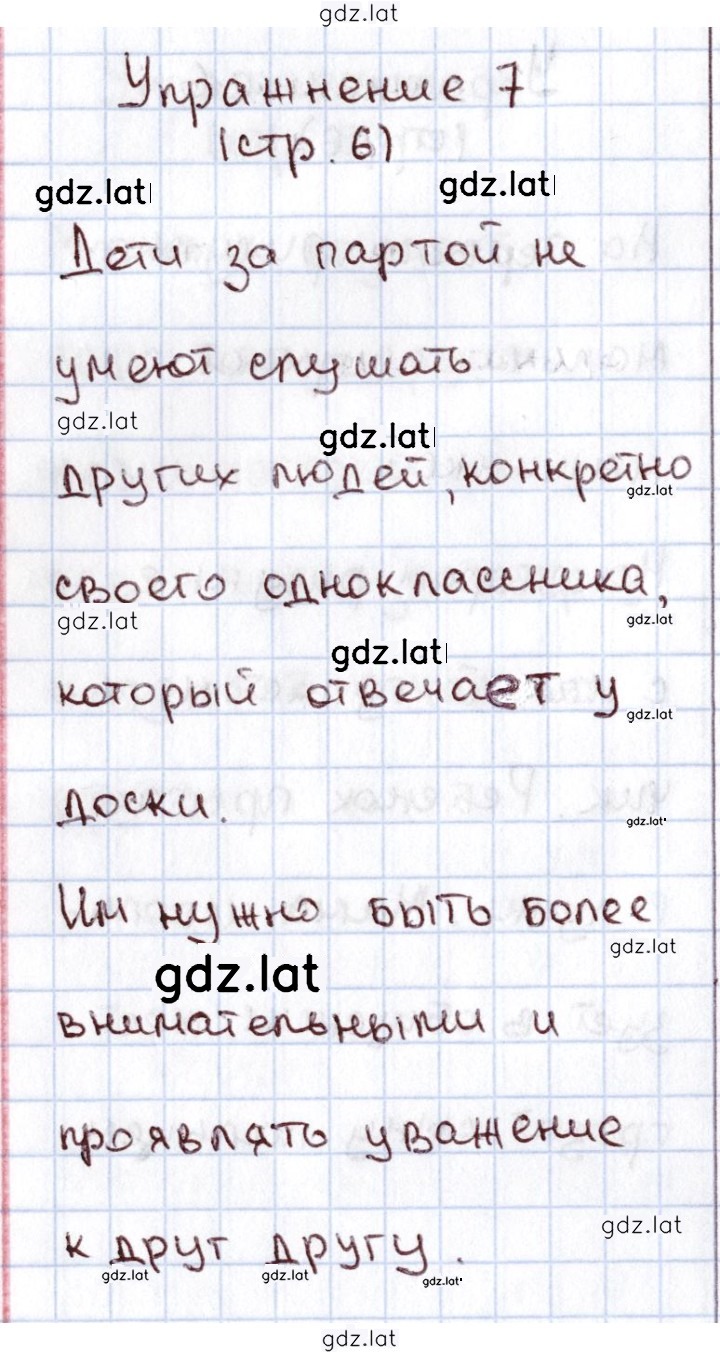 gdz.lat
Упражнение 7
(стр. 6)
gdz.lat gdz.lat
Дети за партой не
умеют слушать
gdz.lat gdz.lat
других людей, конкретно
gdz.lat
своего одноклассника,
gdz.lat gdz.lat
gdz.lat
который отвечает у
gdz.lat
доски.
gdz.lat
Им нужно быть более
gdz.lat
gdz.lat
внимательными и
проявлять уважение
gdz.lat
к друг другу.
gdz.lat gdz.lat gdz.lat
gdz.lat